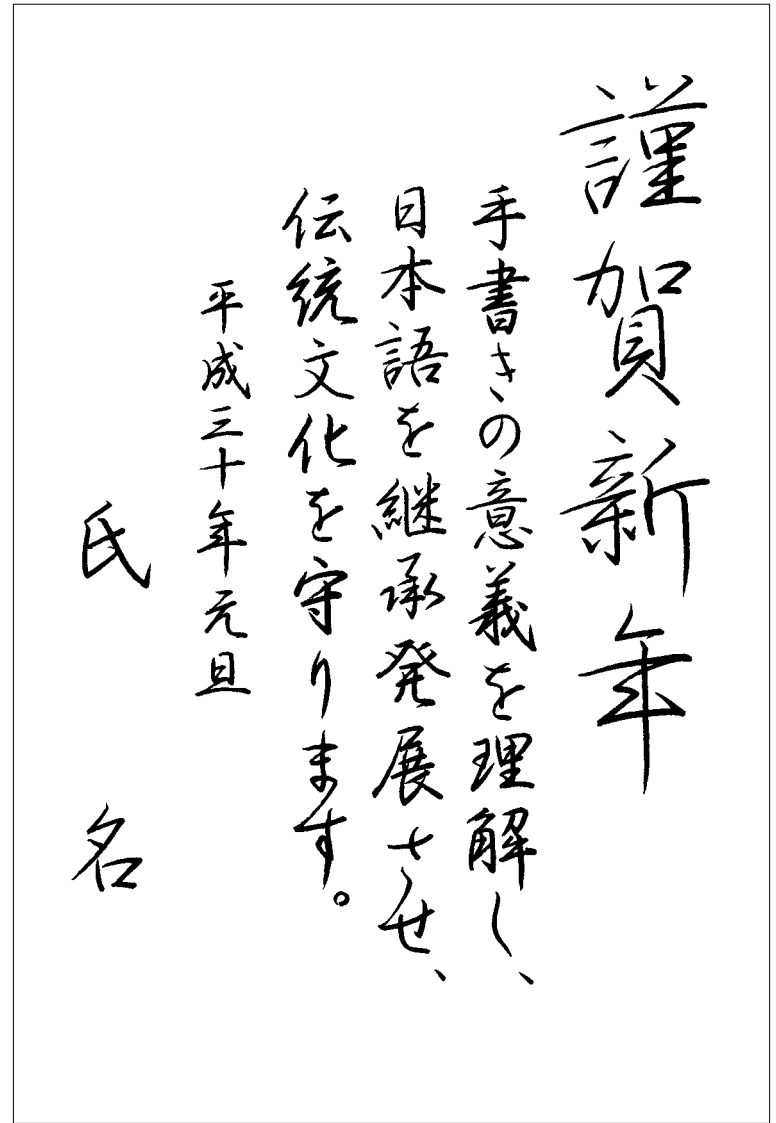 謹賀新年
手書きの意義を理解し、
日本語を継承発展させ、
伝統文化を守ります。
平成三十年元旦
氏名